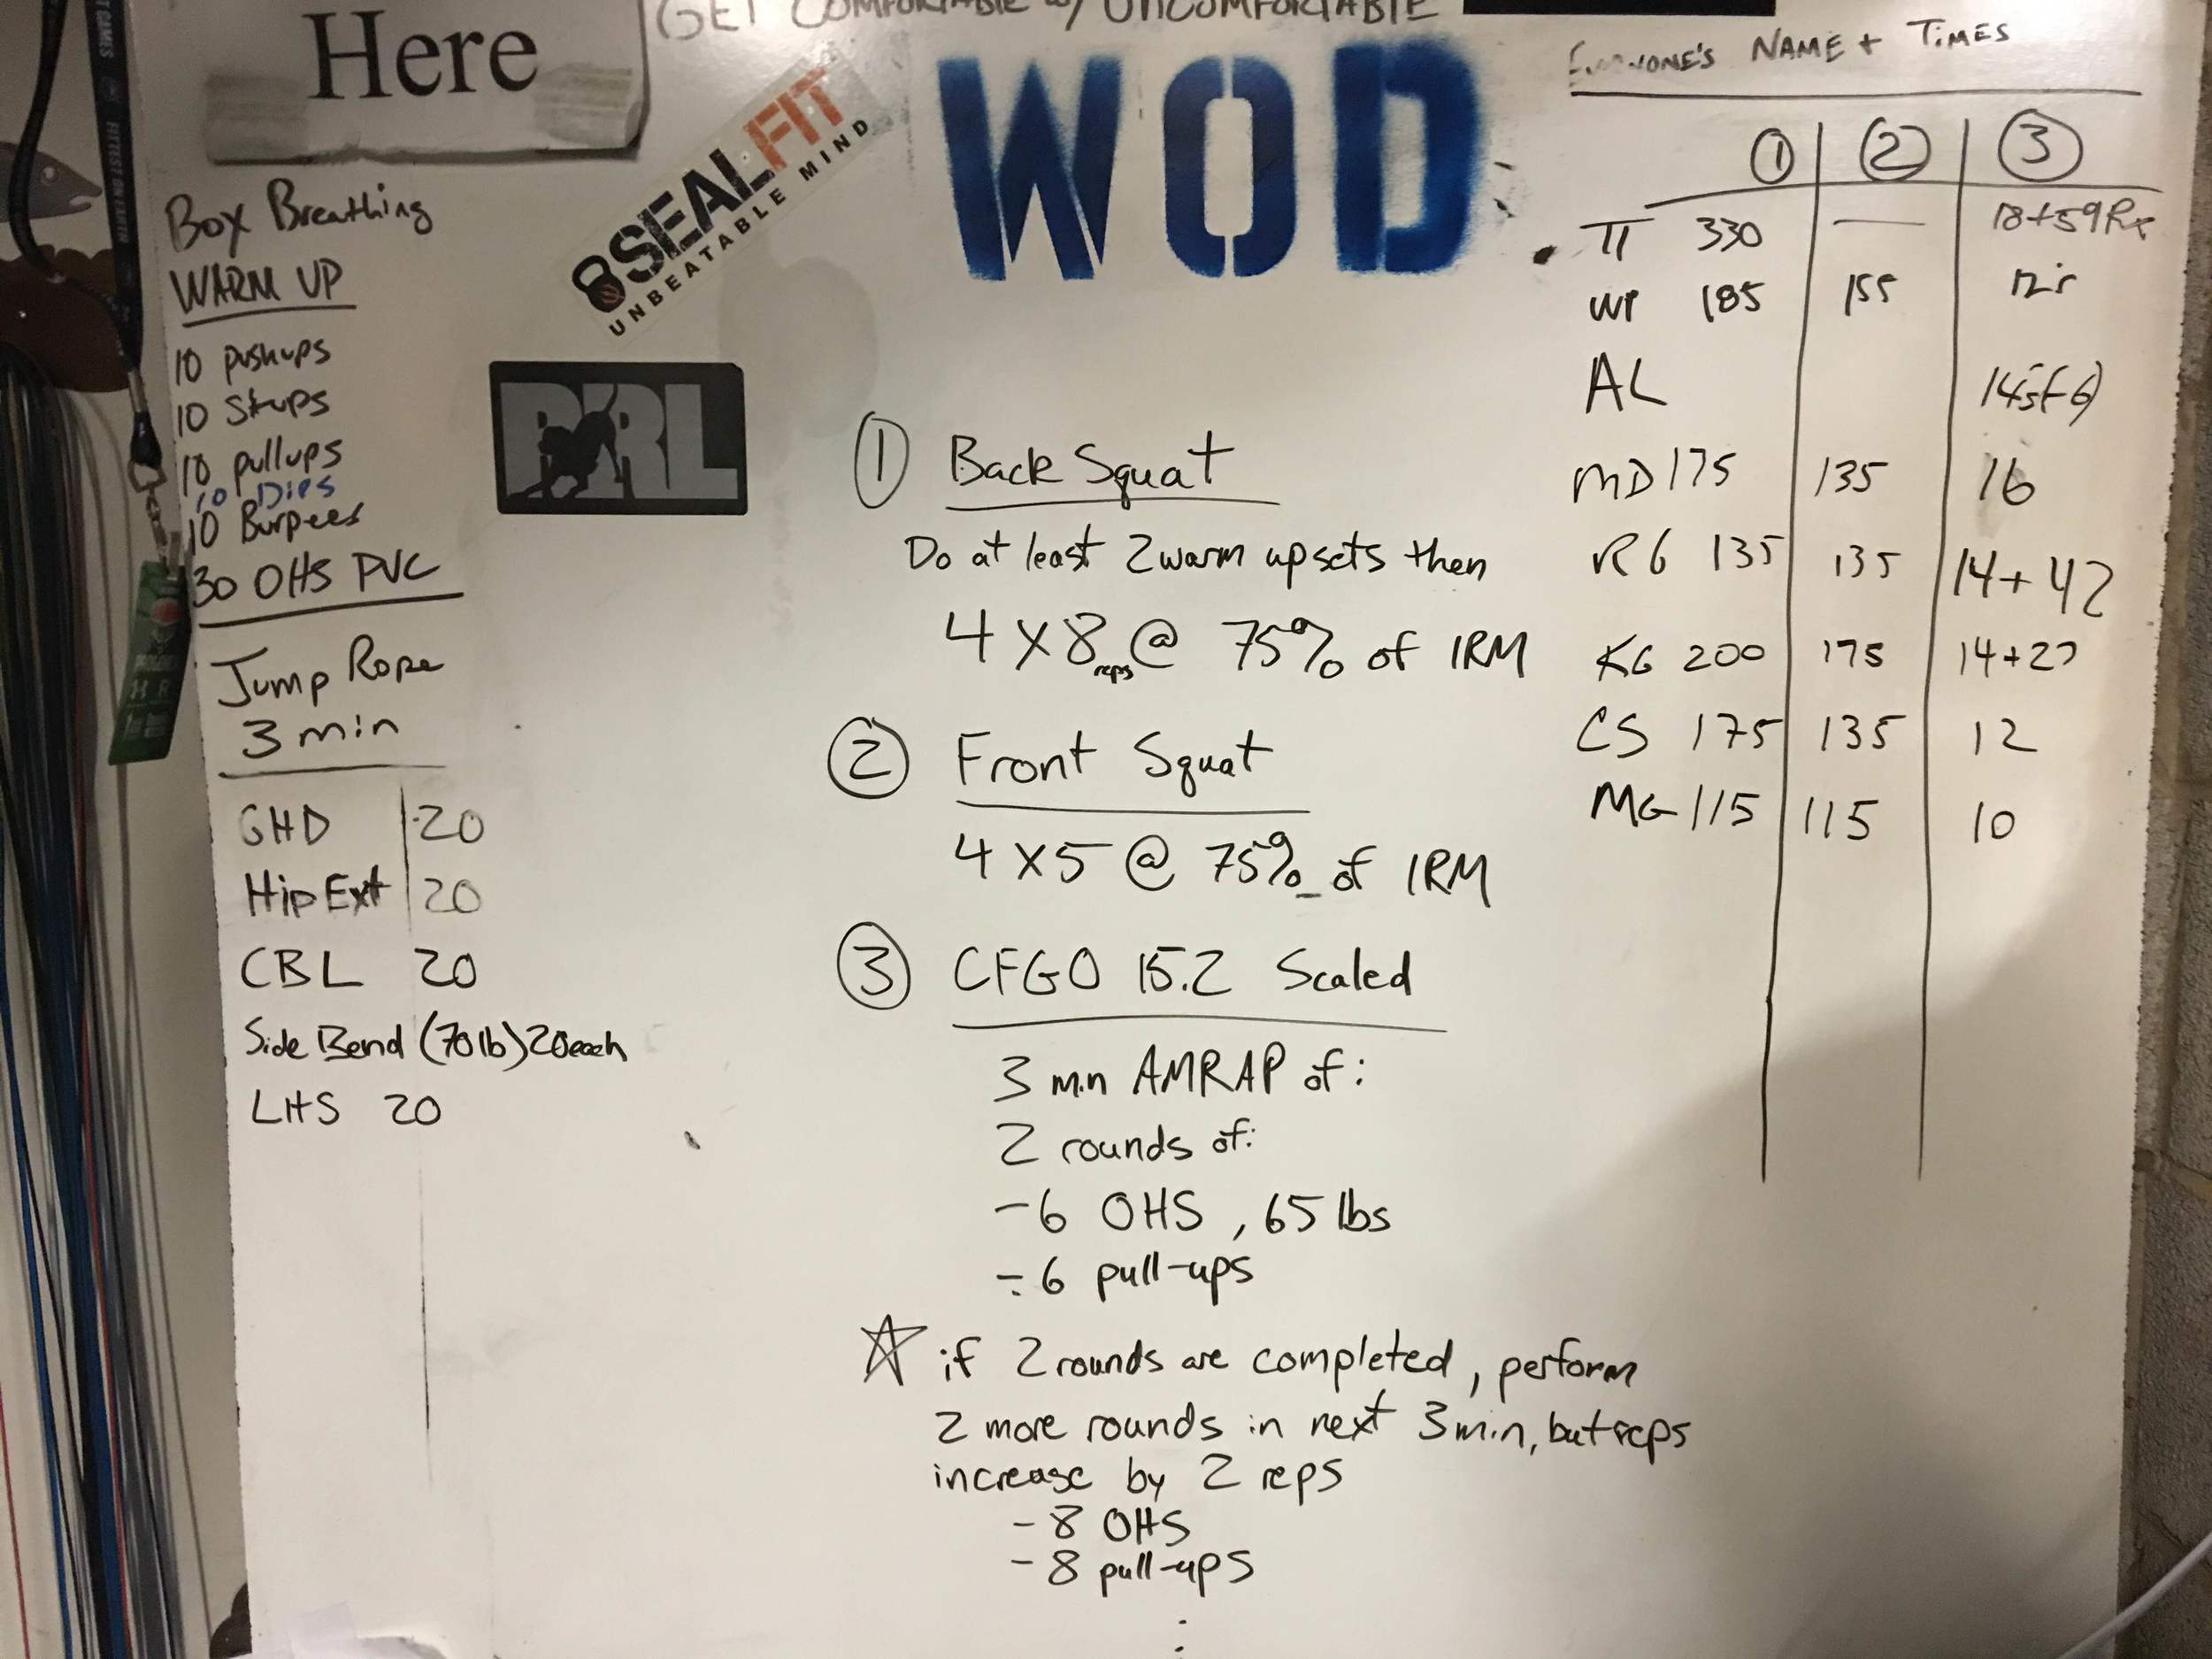 Here
GET COMFORTABLE w/ UNCOMFORTABLE
WOD
SEALFIT
UNBEATABLE MIND
Box Breathing
WARM UP
10 pushups
10 Situps
10 pullups
10 Dips
10 Burpees
30 OHS PVC
Jump Rope
3 min
GHD 20
Hip Ext 20
CBL 20
Side Bend (70 lb) 20 each
LHS 20
① Back Squat
Do at least 2 warm up sets then
4 X 8 reps @ 75% of 1RM
② Front Squat
4 X 5 @ 75% of 1RM
③ CFGO 15.2 Scaled
3 min AMRAP of:
2 rounds of:
- 6 OHS, 65 lbs
- 6 pull-ups
☆ if 2 rounds are completed, perform
2 more rounds in next 3 min, but reps
increase by 2 reps
- 8 OHS
- 8 pull-ups
⋮
EVERYONE'S NAME + TIMES
① ② ③
330 — 18+59 Rx
WP 185 155
AL
MD 175 135 16
RG 135 135 14+42
KG 200 175
CS 175 135 12
MG 115 115 10